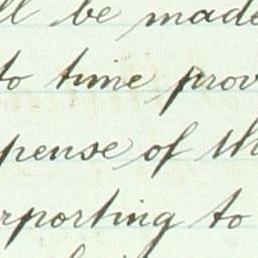 ll be made
to time prov
pense of th
rporting to